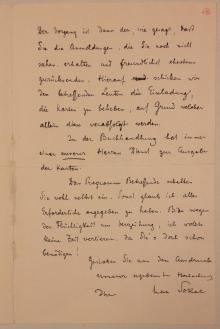 Der Vorgang ist dann der, wie gesagt, daß
Sie die Anmeldungen, die Sie noch
sehen, erhalten und freundlichst ehestens
zurücksenden. Hierauf schicken wir
den betreffenden Leuten die Einladung,
die Karten zu beheben, auf Grund welcher
allein diese verabfolgt werden.
In der Buchhandlung hat immer
einer unserer Herren Dienst zur Ausgabe
der Karten.
Das Programm Betreffende erhalten
Sie wohl selbst ein. Sonst glaub ich alles
Erforderliche angegeben zu haben. Bitte wegen
der Flüchtigkeit um Verzeihung, ich wollte
keine Zeit verlieren, da Sie's dort schon
benötigen!
Genießen Sie nun den Ausdruck
unserer ergebenst Hochachtung
Ihr